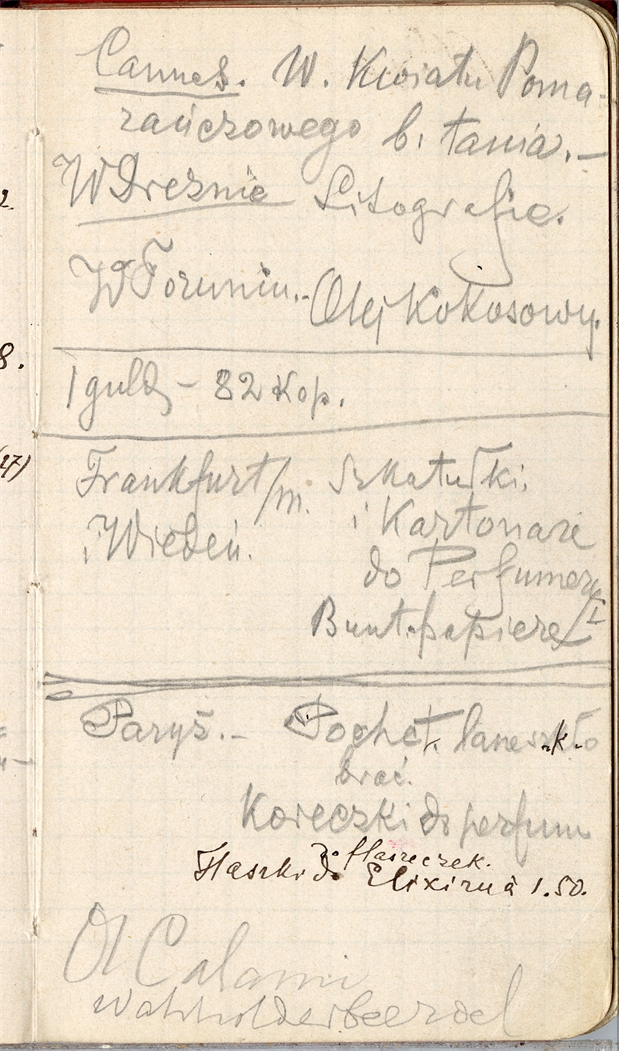 Cannes. W. Kwiatu Poma-
rańczowego b. tania.—
W Dreznie Litografie.
W Toruniu.- Olej Kokosowy.
1 guld – 82 Kop.
Frankfurt/m. Szkatułki
i Wiedeń. i Kartonaże
do Perfumeryi
Buntpapiere
Paryż.- Pochet, lane szkło
brać.
Koreczki do perfum
do flaszeczek.
Flaszki do Elixiru à 1.50.
Ol Calami
Wahholderbeeroel
2
8.
(27)